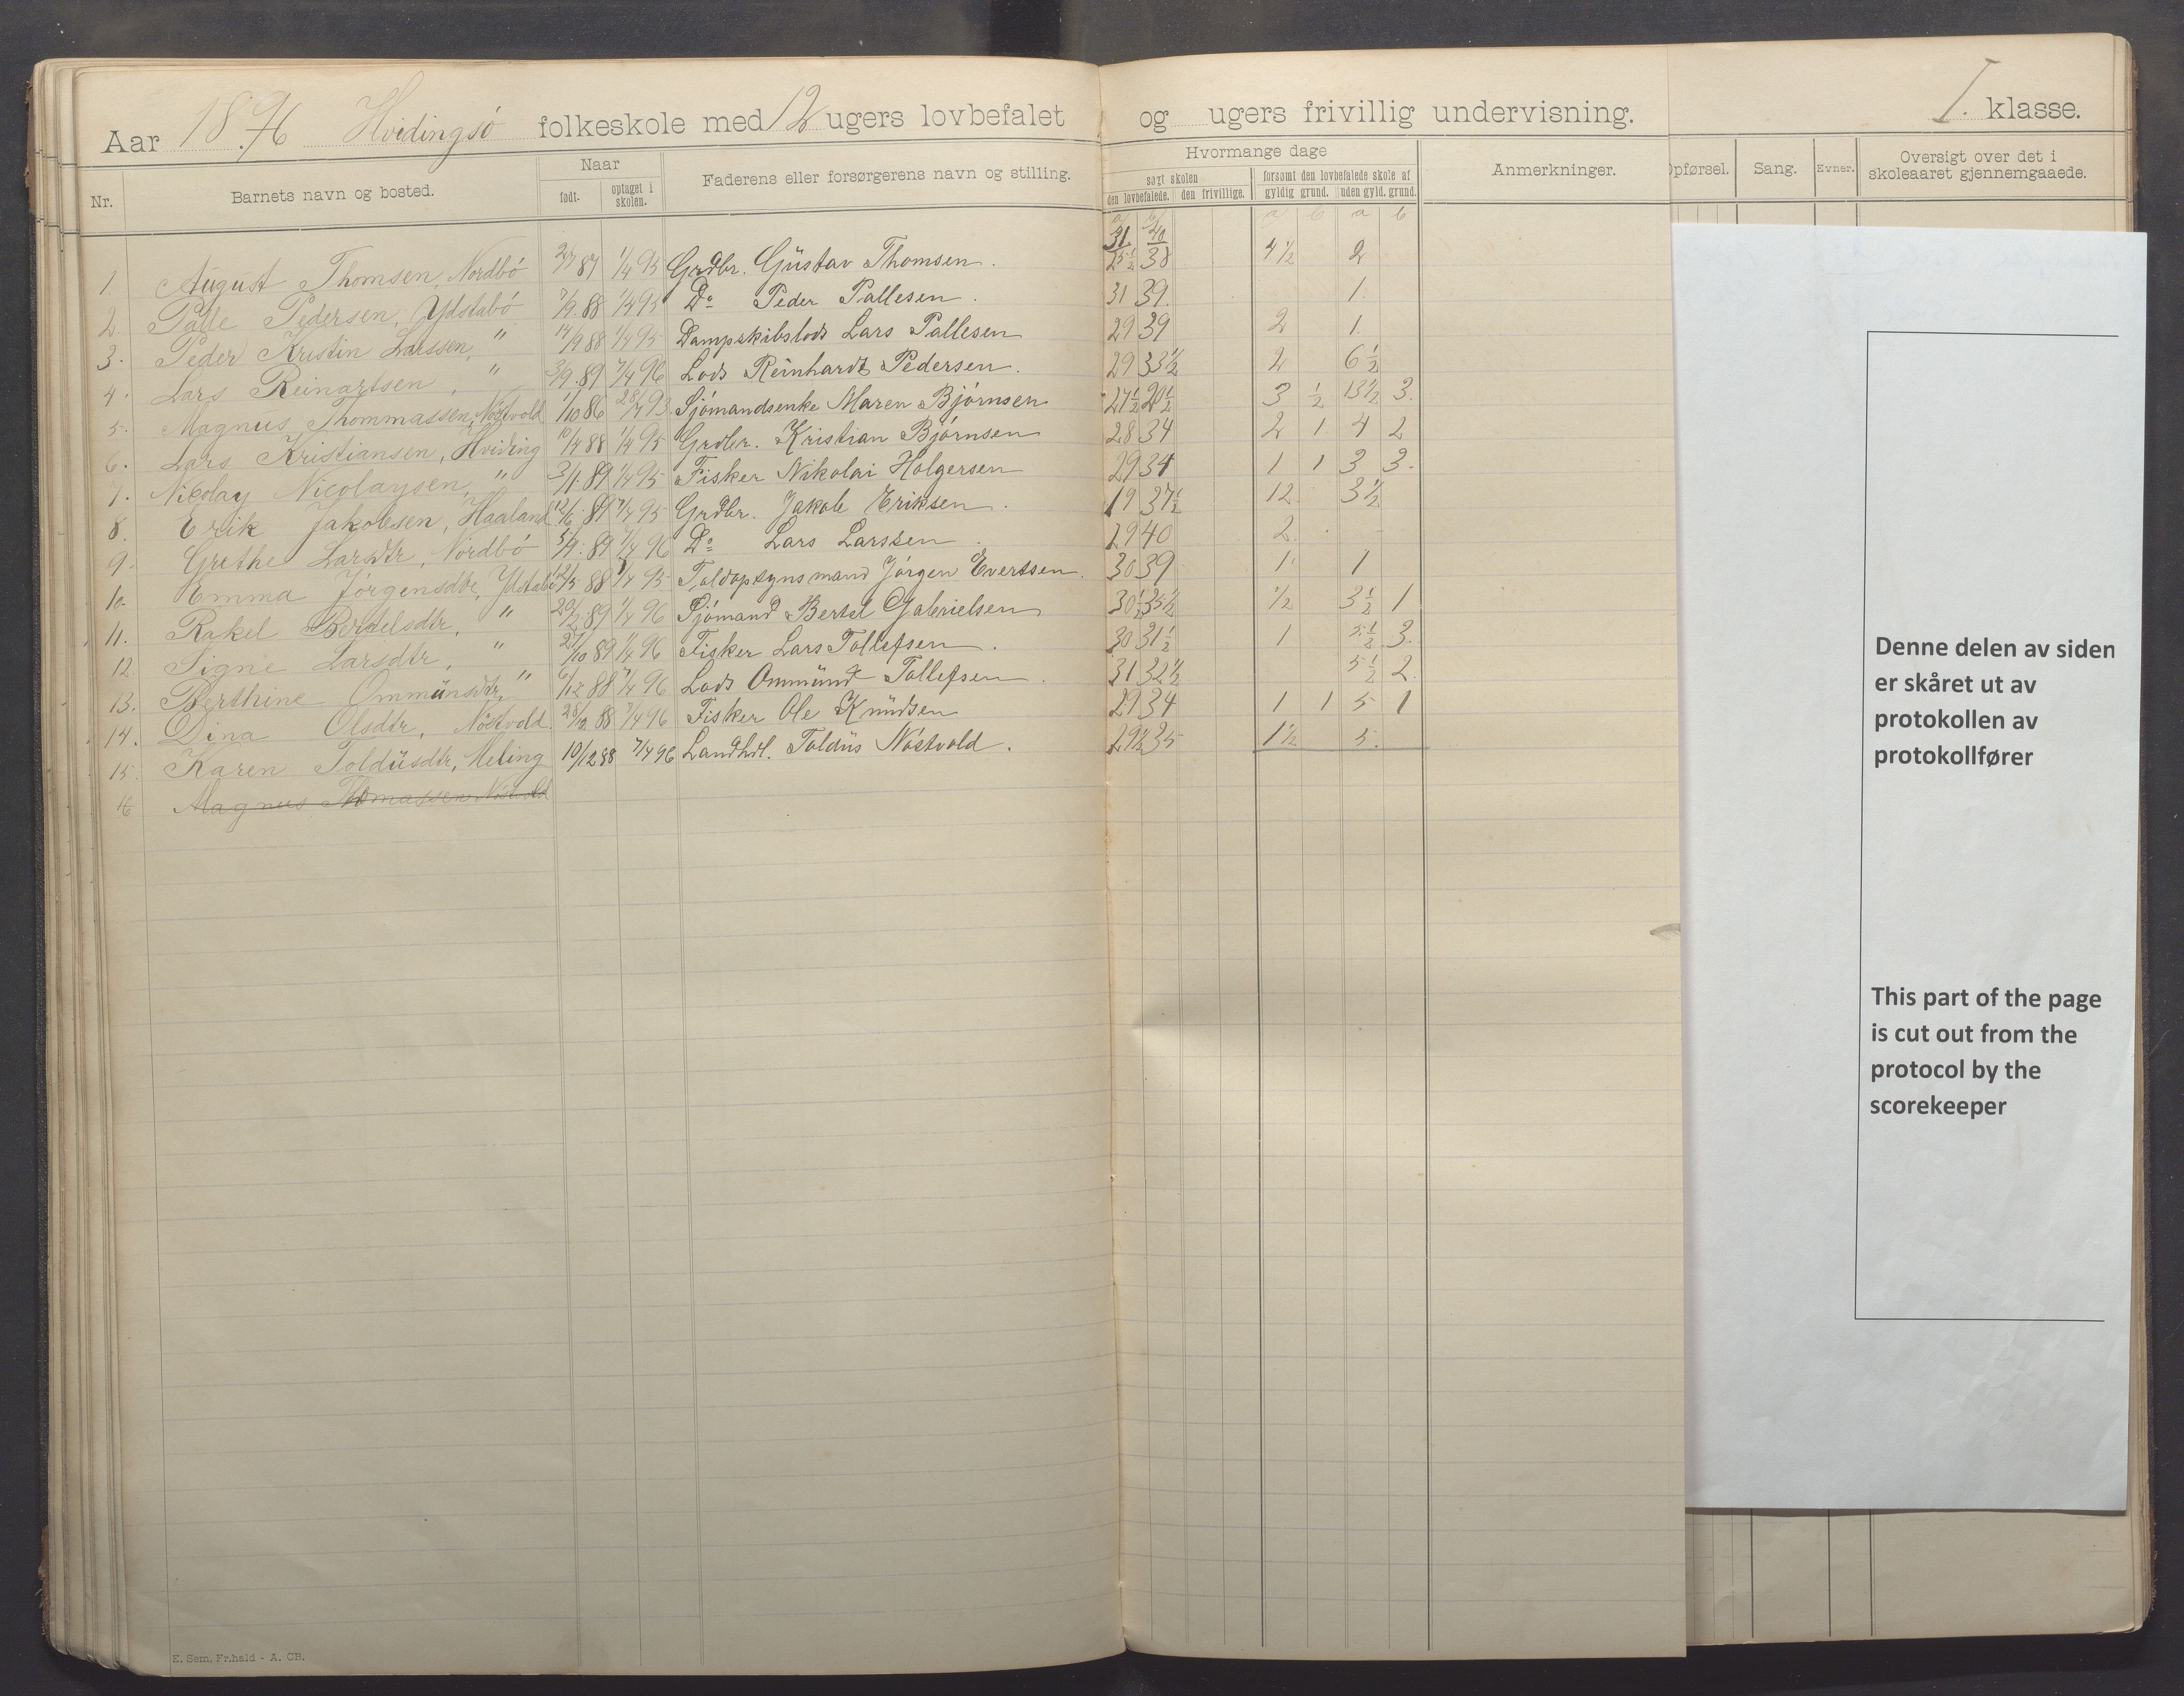 Aar 1896 Hvidingsö folkeskole med 12 ugers lovbefalet og ugers frivillig undervisning. I. klasse.
Nr. Barnets navn og bosted. Naar født. optaget i skolen. Faderens eller forsørgerens navn og stilling. Hvormange dage søgt skolen den lovbefalede. den frivillige. forsømt den lovbefalede skole af gyldig grund. uden gyld. grund. Anmerkninger. Opførsel. Sang. Evner. Oversigt over det i skoleaaret gjennemgaaede.
a b a b a b
31 40
1. August Thomsen, Nordbö 87 1/4 95 Grdbr. Güstav Thomsen. 25½ 38 4½ 2
2. Palle Pedersen, Ydstabö 88 1/4 95 Do Peder Pallesen. 31 39. 1.
3. Peder Kristin Larssen, " 14/9 88 1/4 95 Dampskibslods Lars Pallesen 29 39 2 1.
4. Lars Reinartsen, " 3/9. 89 7/4 96 Lods Reinhardt Pedersen. 29 33½ 2 6½
5. Magnus Thommassen, Nöstvold 1/10 86 93 Sjömandsenke Maren Björnsen 27½ 20½ 3 ½ 13½ 3.
6. Lars Kristiansen, Hviding 10/4 88 1/4 95 Grdbr. Kristian Björnsen 28 34 2 1 4 2
7. Nicolay Nicolaysen " 3/1. 89 1/4 95 Fisker Nikolai Holgersen 29 34 1 1 3 3.
8. Erik Jakobsen, Haaland 12/6 1/4 95 Grdbr. Jakob Eriksen. 19 37½ 12. 3½
9. Grethe Larsdtr, Nordbö 89 7/4 96 Do Lars Larssen. 29 40 2.
10. Emma Jörgensdtr, Ydstabö 12/5 88 1/4 95 Toldopsynsmand Jörgen Evertsen. 30 39 1. 1
11. Rakel Bertelsdtr, " 20/2 89 1/4 96 Sjömand Bertel Gabrielsen 30½ 35½ ½ 3½ 1
12. Signe Larsdtr, " 27/10 89 1/4 96 Fisker Lars Tollefsen. 30 31½ 1 5½ 3.
13. Berthine Ommünsdtr, " 6/12 88 7/4 96 Lods Ommünd Tollefsen. 31 32½ 5½ 2.
14. Dina Olsdtr, Nöstvold. 28/12 88 7/4 96 Fisker Ole Knüdsen 29 34 1 1 5 1
15. Karen Toldüsdtr, Meling 10/12 88 7/4 96 Landhdl. Toldüs Nöstvold. 29½ 35 1½ 5.
16 Magnus Thomassen Nöstvold
Denne delen av siden
er skåret ut av
protokollen av
protokollfører
This part of the page
is cut out from the
protocol by the
scorekeeper
E. Sem, Fr.hald - A. CB.